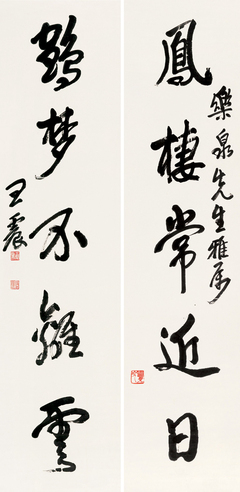 鳳棲常近日
樂泉先生雅屬
鶴夢不離雲
王震